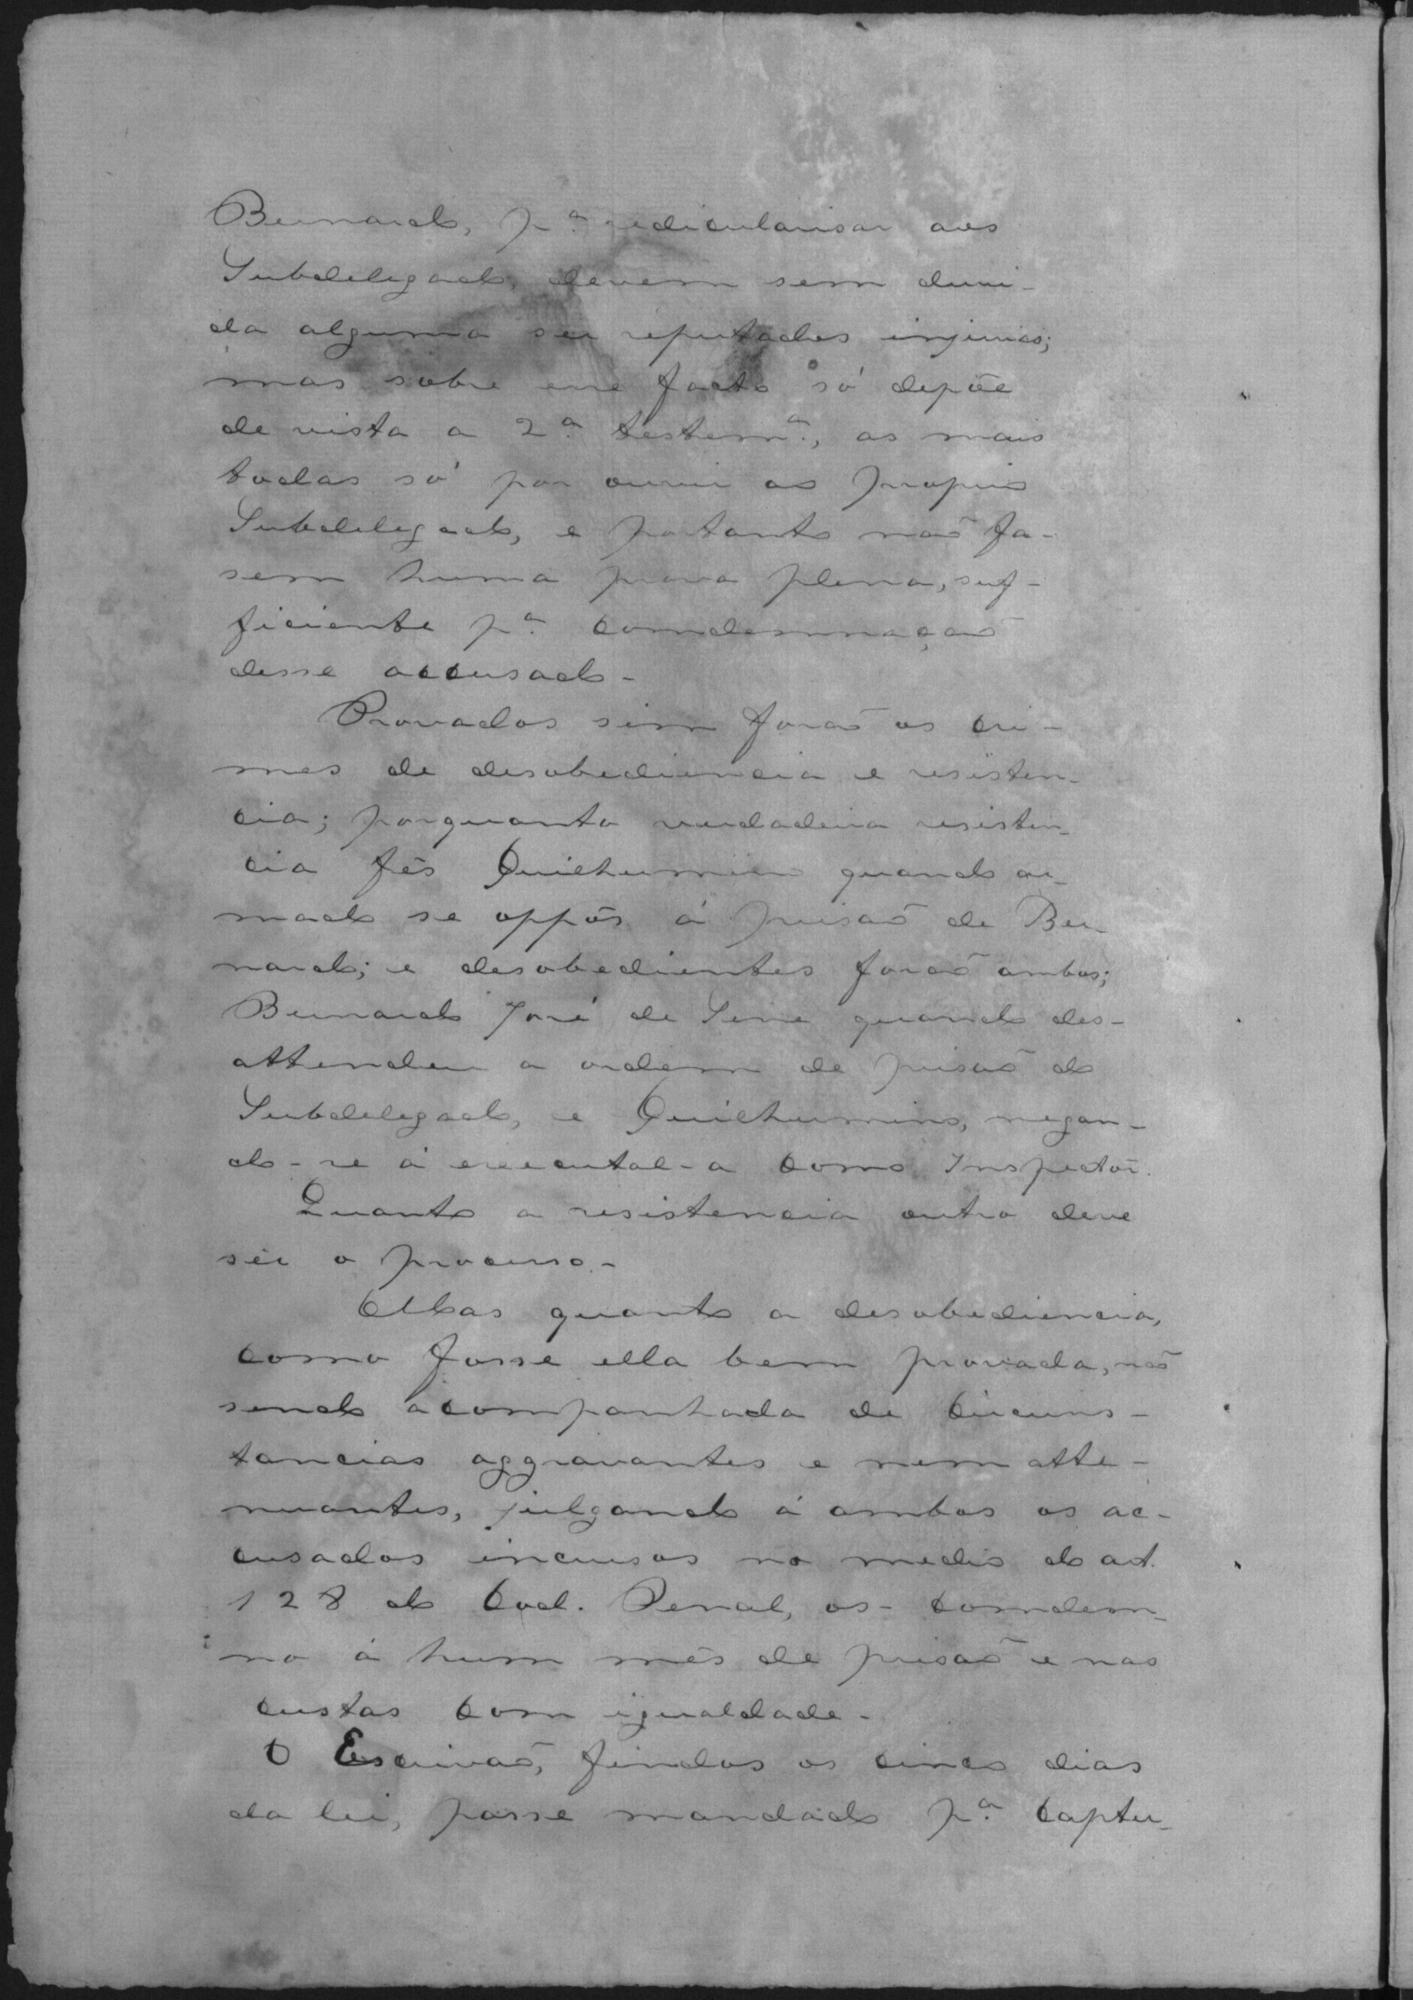 Bernardo, p.ª redicularisar aos
Subdelegado, devem sem duvi-
da alguma ser reputados injurias;
mas sobre esse facto só depõe
de vista a 2.ª testem.ª, as mais
todas só por ouvir ao proprio
Subdelegado, e portanto não fa-
sem huma prova plena, suf-
ficiente p.ª comdemnação
desse accusado-
Provados sim forão os cri-
mes de desobediencia e resisten-
cia; porquanto verdadeira resisten-
cia fês Guilhermino quando ar-
mado se oppôs á prisão de Ber-
nardo; e desobedientes forão ambos;
Bernardo José de Sene quando des-
attendeu a ordem de prisão do
Subdelegado, e Guilhermino, negan-
do-se á executal-a como Inspector.
Quanto a resistencia outro deve
ser o processo.-
Mas quanto a desobediencia,
como fosse ella bem provada, não
sendo acompanhada de circuns-
tancias aggravantes e nem atte-
nuantes, julgando á ambos os ac-
cusados incursos no medio do art.
128 do Cod. Penal, os- comdem-
no á hum mês de prisão e nas
custas com igualdade-
O Escrivão, findos os cinco dias
da lei, passe mandado p.ª captu-